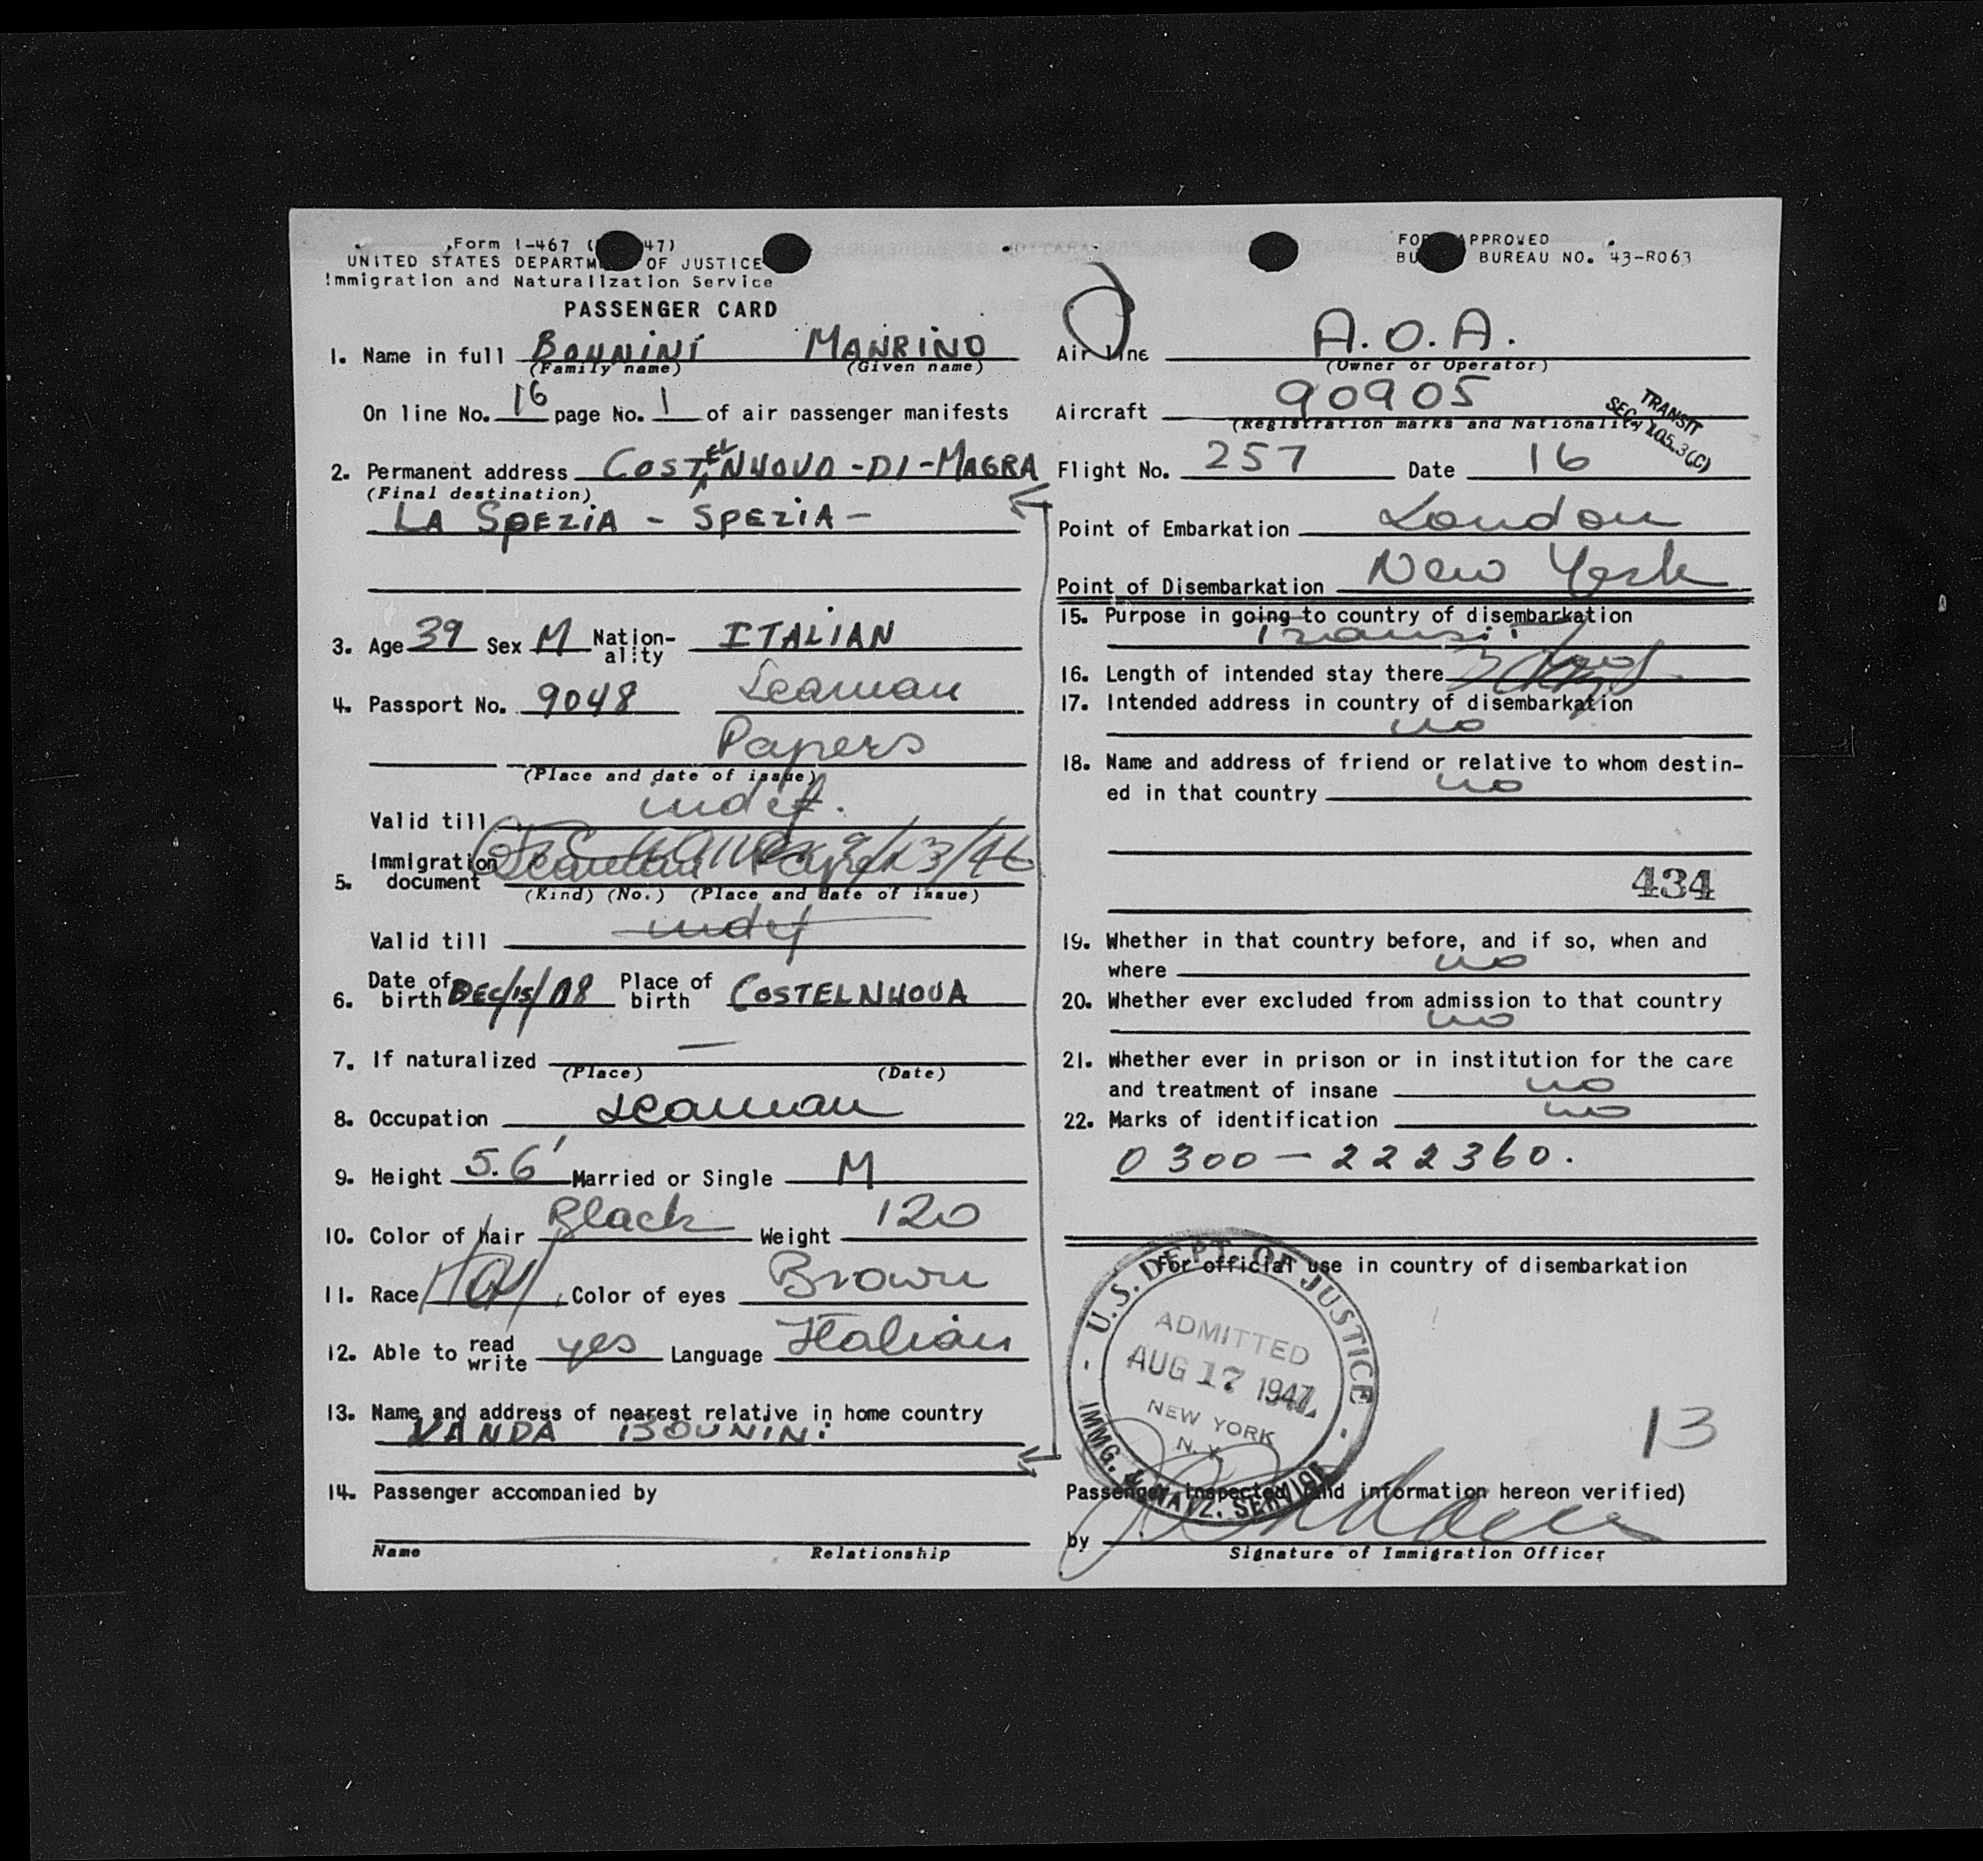 Form I-467 ( 47)
UNITED STATES DEPARTM OF JUSTICE
Immigration and Naturalization Service
PASSENGER CARD
1. Name in full BOUNINI MANRINO
(Family name) (Given name)
On line No. 16 page No. 1 of air passenger manifests
2. Permanent address COSTELNUOVO-DI-MAGRA
(Final destination)
LA SPEZIA - SPEZIA -
3. Age 39 Sex M Nation-ality ITALIAN
4. Passport No. 9048 Seaman
Papers
(Place and date of issue)
Valid till indef.
5. Immigration document Seaman Paper 9/13/46
(Kind) (No.) (Place and date of issue)
Valid till indef
6. Date of birth DEC/15/08 Place of birth COSTELNUOVA
7. If naturalized —
(Place) (Date)
8. Occupation seaman
9. Height 5.6' Married or Single M
10. Color of hair Black Weight 120
11. Race Color of eyes Brown
12. Able to read write yes Language Italian
13. Name and address of nearest relative in home country
VANDA BOUNINI
14. Passenger accompanied by
Name Relationship
FO PPROVED
BU BUREAU NO. 43-R063
Air line A.O.A.
(Owner or Operator)
Aircraft 90905
(Registration marks and Nationality)
TRANSIT
SEC. 105.3(C)
Flight No. 257 Date 16
Point of Embarkation London
Point of Disembarkation New York
15. Purpose in going to country of disembarkation
Transit
16. Length of intended stay there
17. Intended address in country of disembarkation
no
18. Name and address of friend or relative to whom destin-
ed in that country no
434
19. Whether in that country before, and if so, when and
where no
20. Whether ever excluded from admission to that country
no
21. Whether ever in prison or in institution for the care
and treatment of insane no
22. Marks of identification no
0300-222360.
For official use in country of disembarkation
U.S. DEPT. OF JUSTICE
ADMITTED
AUG 17 1947
NEW YORK
N.Y.
IMMG. & NATZ. SERVICE
13
Passenger inspected (and information hereon verified)
by
Signature of Immigration Officer